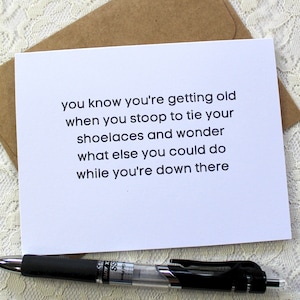 you know you're getting old
when you stoop to tie your
shoelaces and wonder
what else you could do
while you're down there